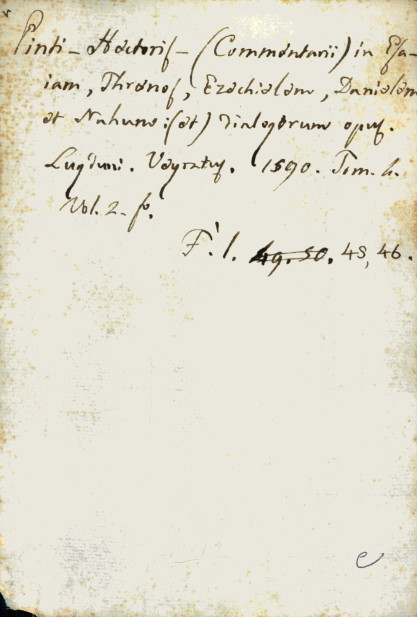 Pinti - Hectoris - (Commentarii) in Esa-
iam, Thrénos, Ezechielem, Danielem
et Nahum: (et) dialogorum opus.
Lugduni. 1590. Tom. 4.
Vol. 2. fo.
F. l. 49. 50. 45, 46.
e